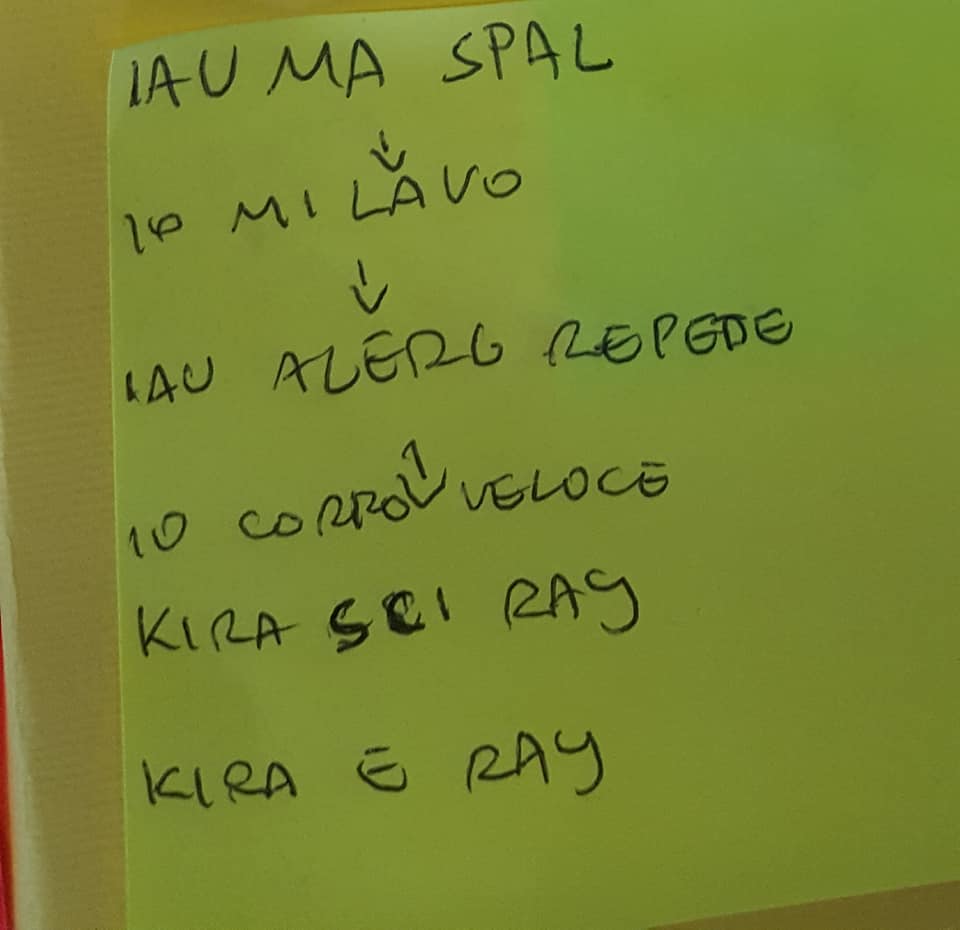 IAU MA SPAL
↓
IO MI LAVO
↓
IAU ALERG REPEDE
IO CORRO VELOCE
KIRA SCI RAY
KIRA E RAY